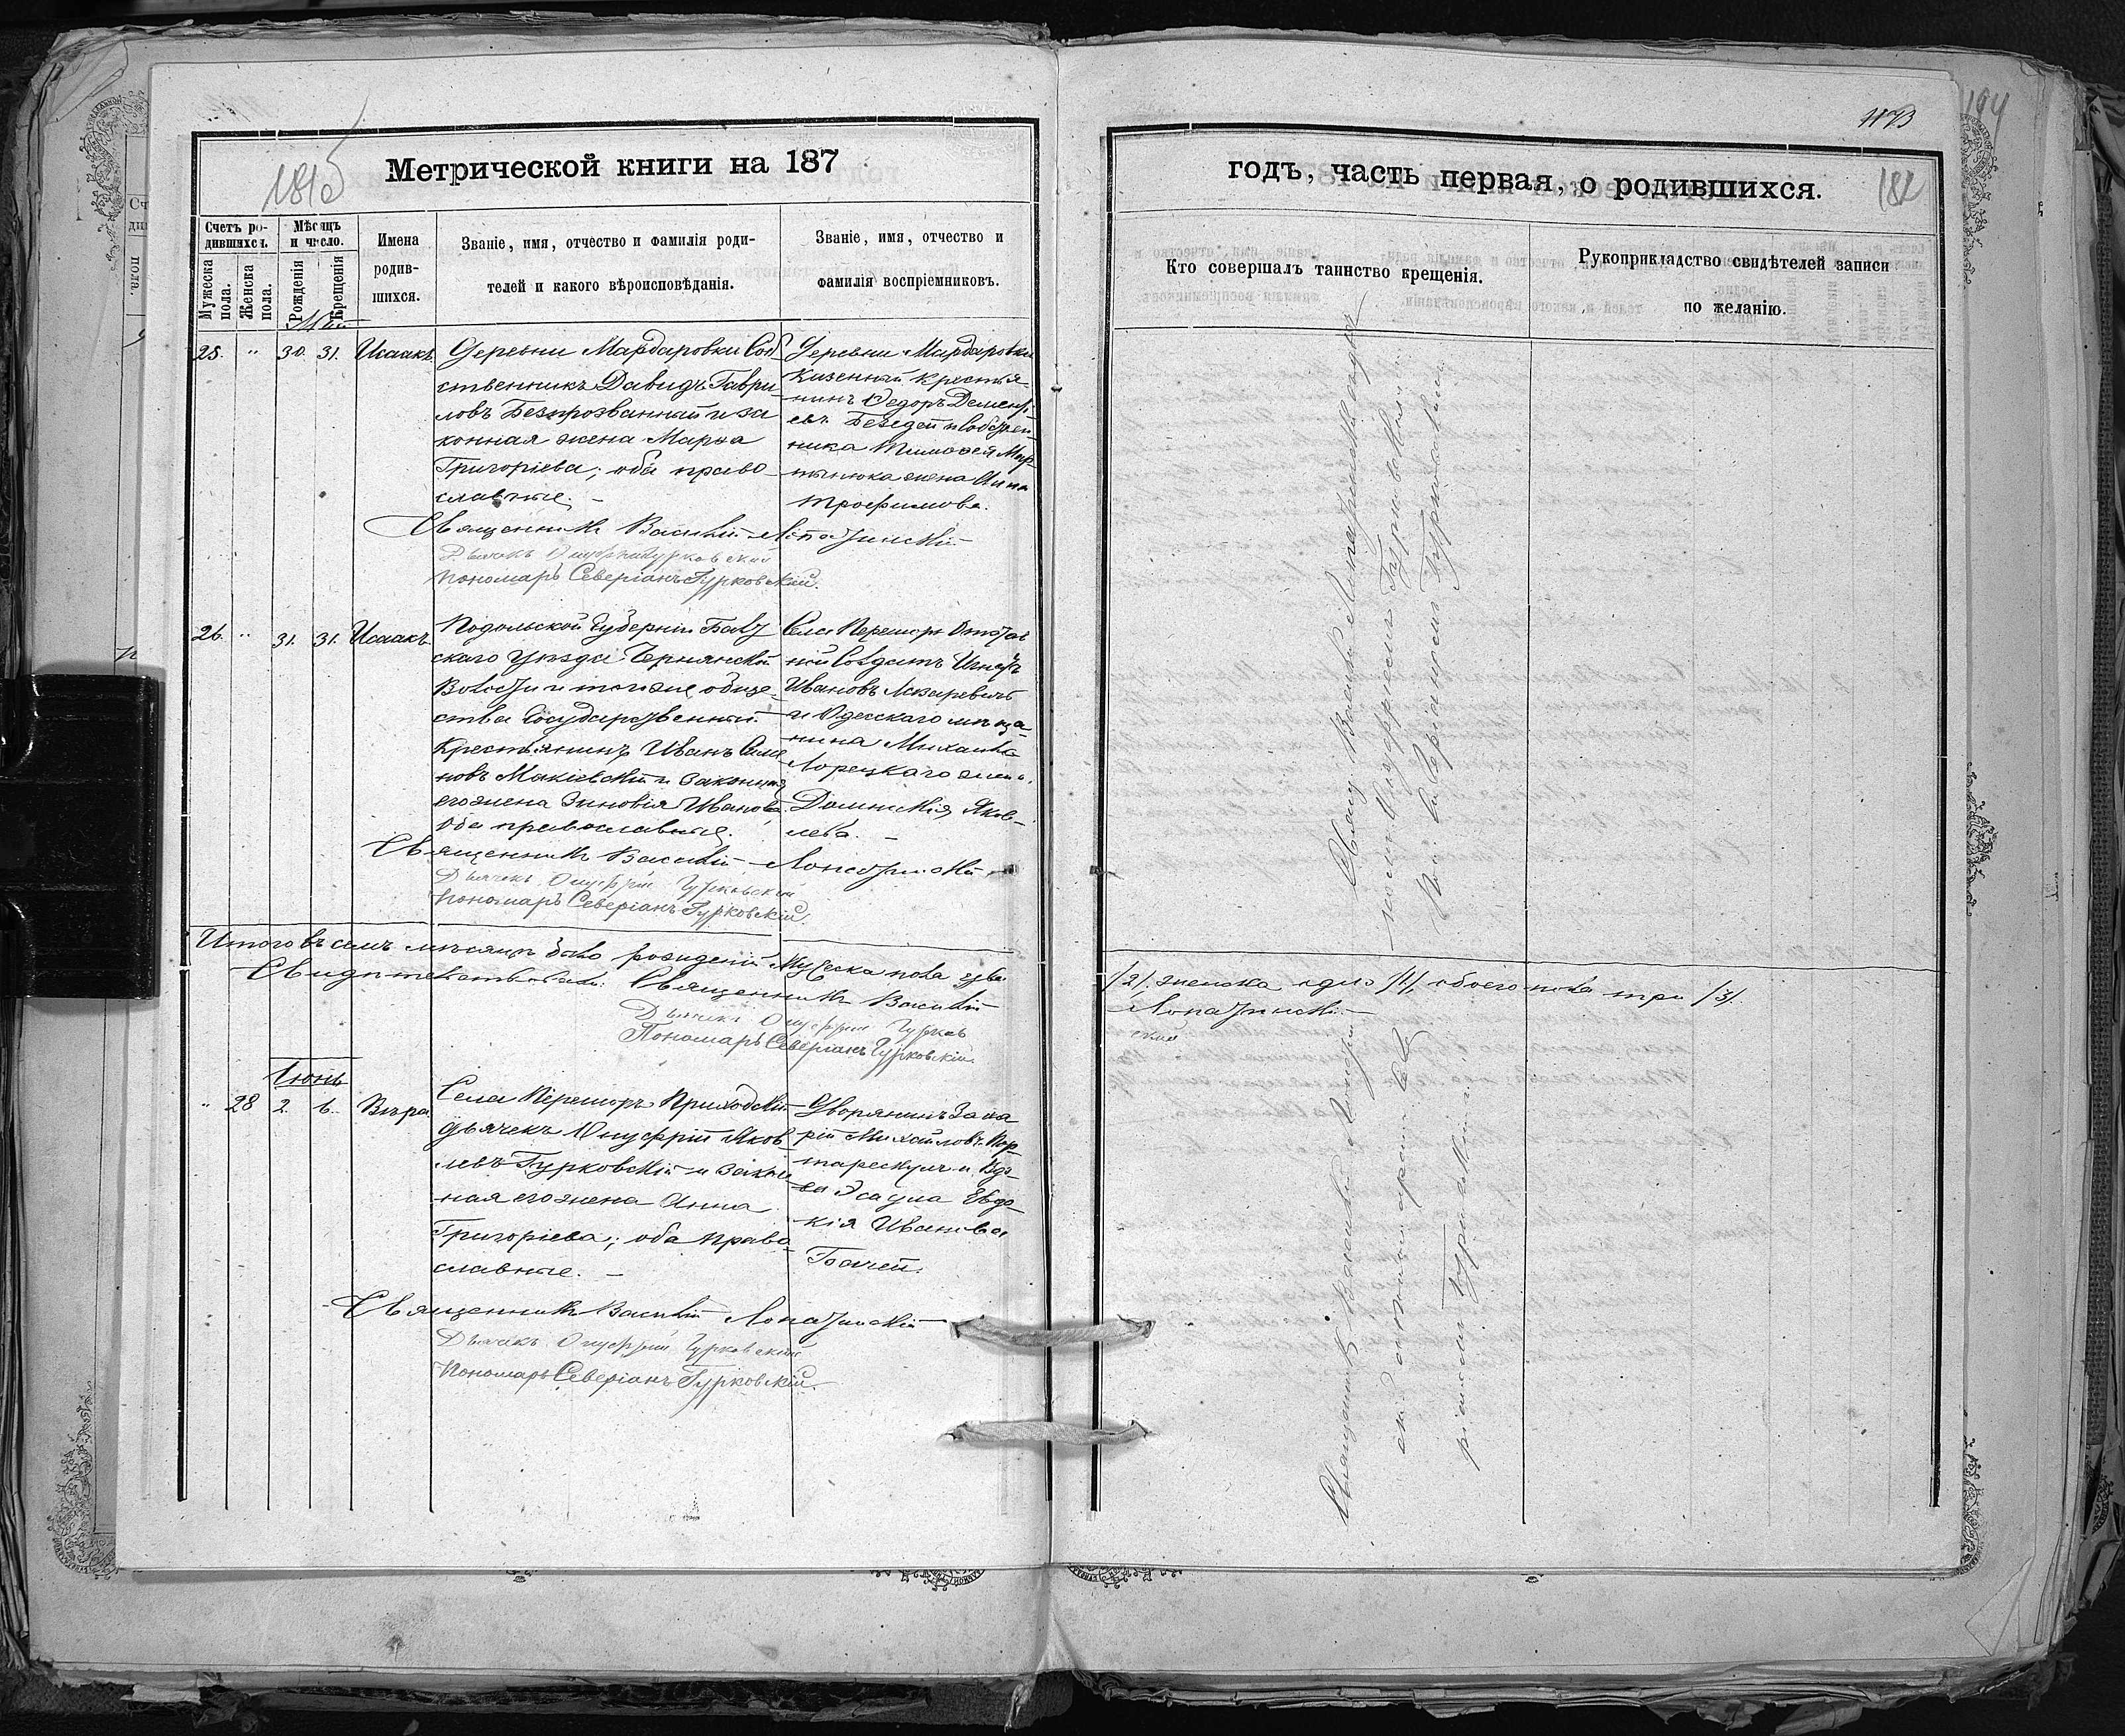 181об
Метрической книги на 187
Счетъ ро-
дившихся.
Мужеска пола.
Женска пола.
Мѣсяцъ
и число.
Рожденія
Крещенія
Имена
родив-
шихся.
Званіе, имя, отчество и фамилія роди-
телей и какого вѣроисповѣданія.
Званіе, имя, отчество и
фамилія воспріемниковъ.
Май
25. " 30. 31. Исаакъ
Деревни Мардаровки Соб-
ственникъ Давидъ Гаври-
ловъ Безпрозванный и за
конная жена Марѳа
Григоріева; оба право-
славные. –
Деревни Мардаровки
Казенный крестья-
нинъ Ѳедоръ Демент
евъ Бегедей и Собствен-
ника Тимоѳея Мар-
тынюка жена Анна
Трофимова.
Священникъ Василій Лопатинскій
Дьячекъ Онуфрій Гурковскій
Пономарь Северіанъ Гурковскій.
26. " 31. 31. Исаакъ
Подольской Губерніи Балт
скаго Уѣзда Чернянской
Волости и тогоже обще-
ства Государственный
Крестьянинъ Иванъ Семе
новъ Макіевскій и Законная
его жена Зиновія Иванова
Оба православные.
Села Перешоръ Отстав
ной Солдатъ Игнатъ
Ивановъ Макаревичъ
и Одесскаго мѣща-
нина Михаила
Лорецкаго жена
Домникія Яков-
лева. –
Священникъ Василій Лопатинскій
Дьячекъ Онуфрій Гурковскій
Пономарь Северіанъ Гурковскій.
Итого въ семъ мѣсяцѣ было рожденій Мужеска пола два
Свидѣтельствовали: Священникъ Василій
Дьячекъ Онуфрій Гурков
Пономарь Северіанъ Гурковскій.
Іюнь
" 28 2. 6. Вѣра
Села Перешоръ Приходскій
дьячекъ Онуфрій Яков
левъ Гурковскій и Закон
ная его жена Анна
Григоріева; оба право-
славные. –
Дворянинъ Заха
рій Михайловъ
и Вдо-
ва Эсаула Евдо-
кія Иванова
Бачей.
Священникъ Василій Лопатинскій
Дьячекъ Онуфрій Гурковскій
Пономарь Северіанъ Гурковскій.
104
182
годъ, часть первая, о родившихся.
Кто совершалъ таинство крещенія.
Рукоприкладство свидѣтелей записи
по желанію.
Священникъ Василій Лопатинскій съ дья
чкомъ Онуфріемъ Гурковскимъ и
Пон. Северіаномъ Гурковскимъ
/2/. женска одно /1/, обоего пола три /3/.
Лопатинскій
скій
Священникъ Василій Лопатин
скій съ
ріаномъ Гурковскимъ